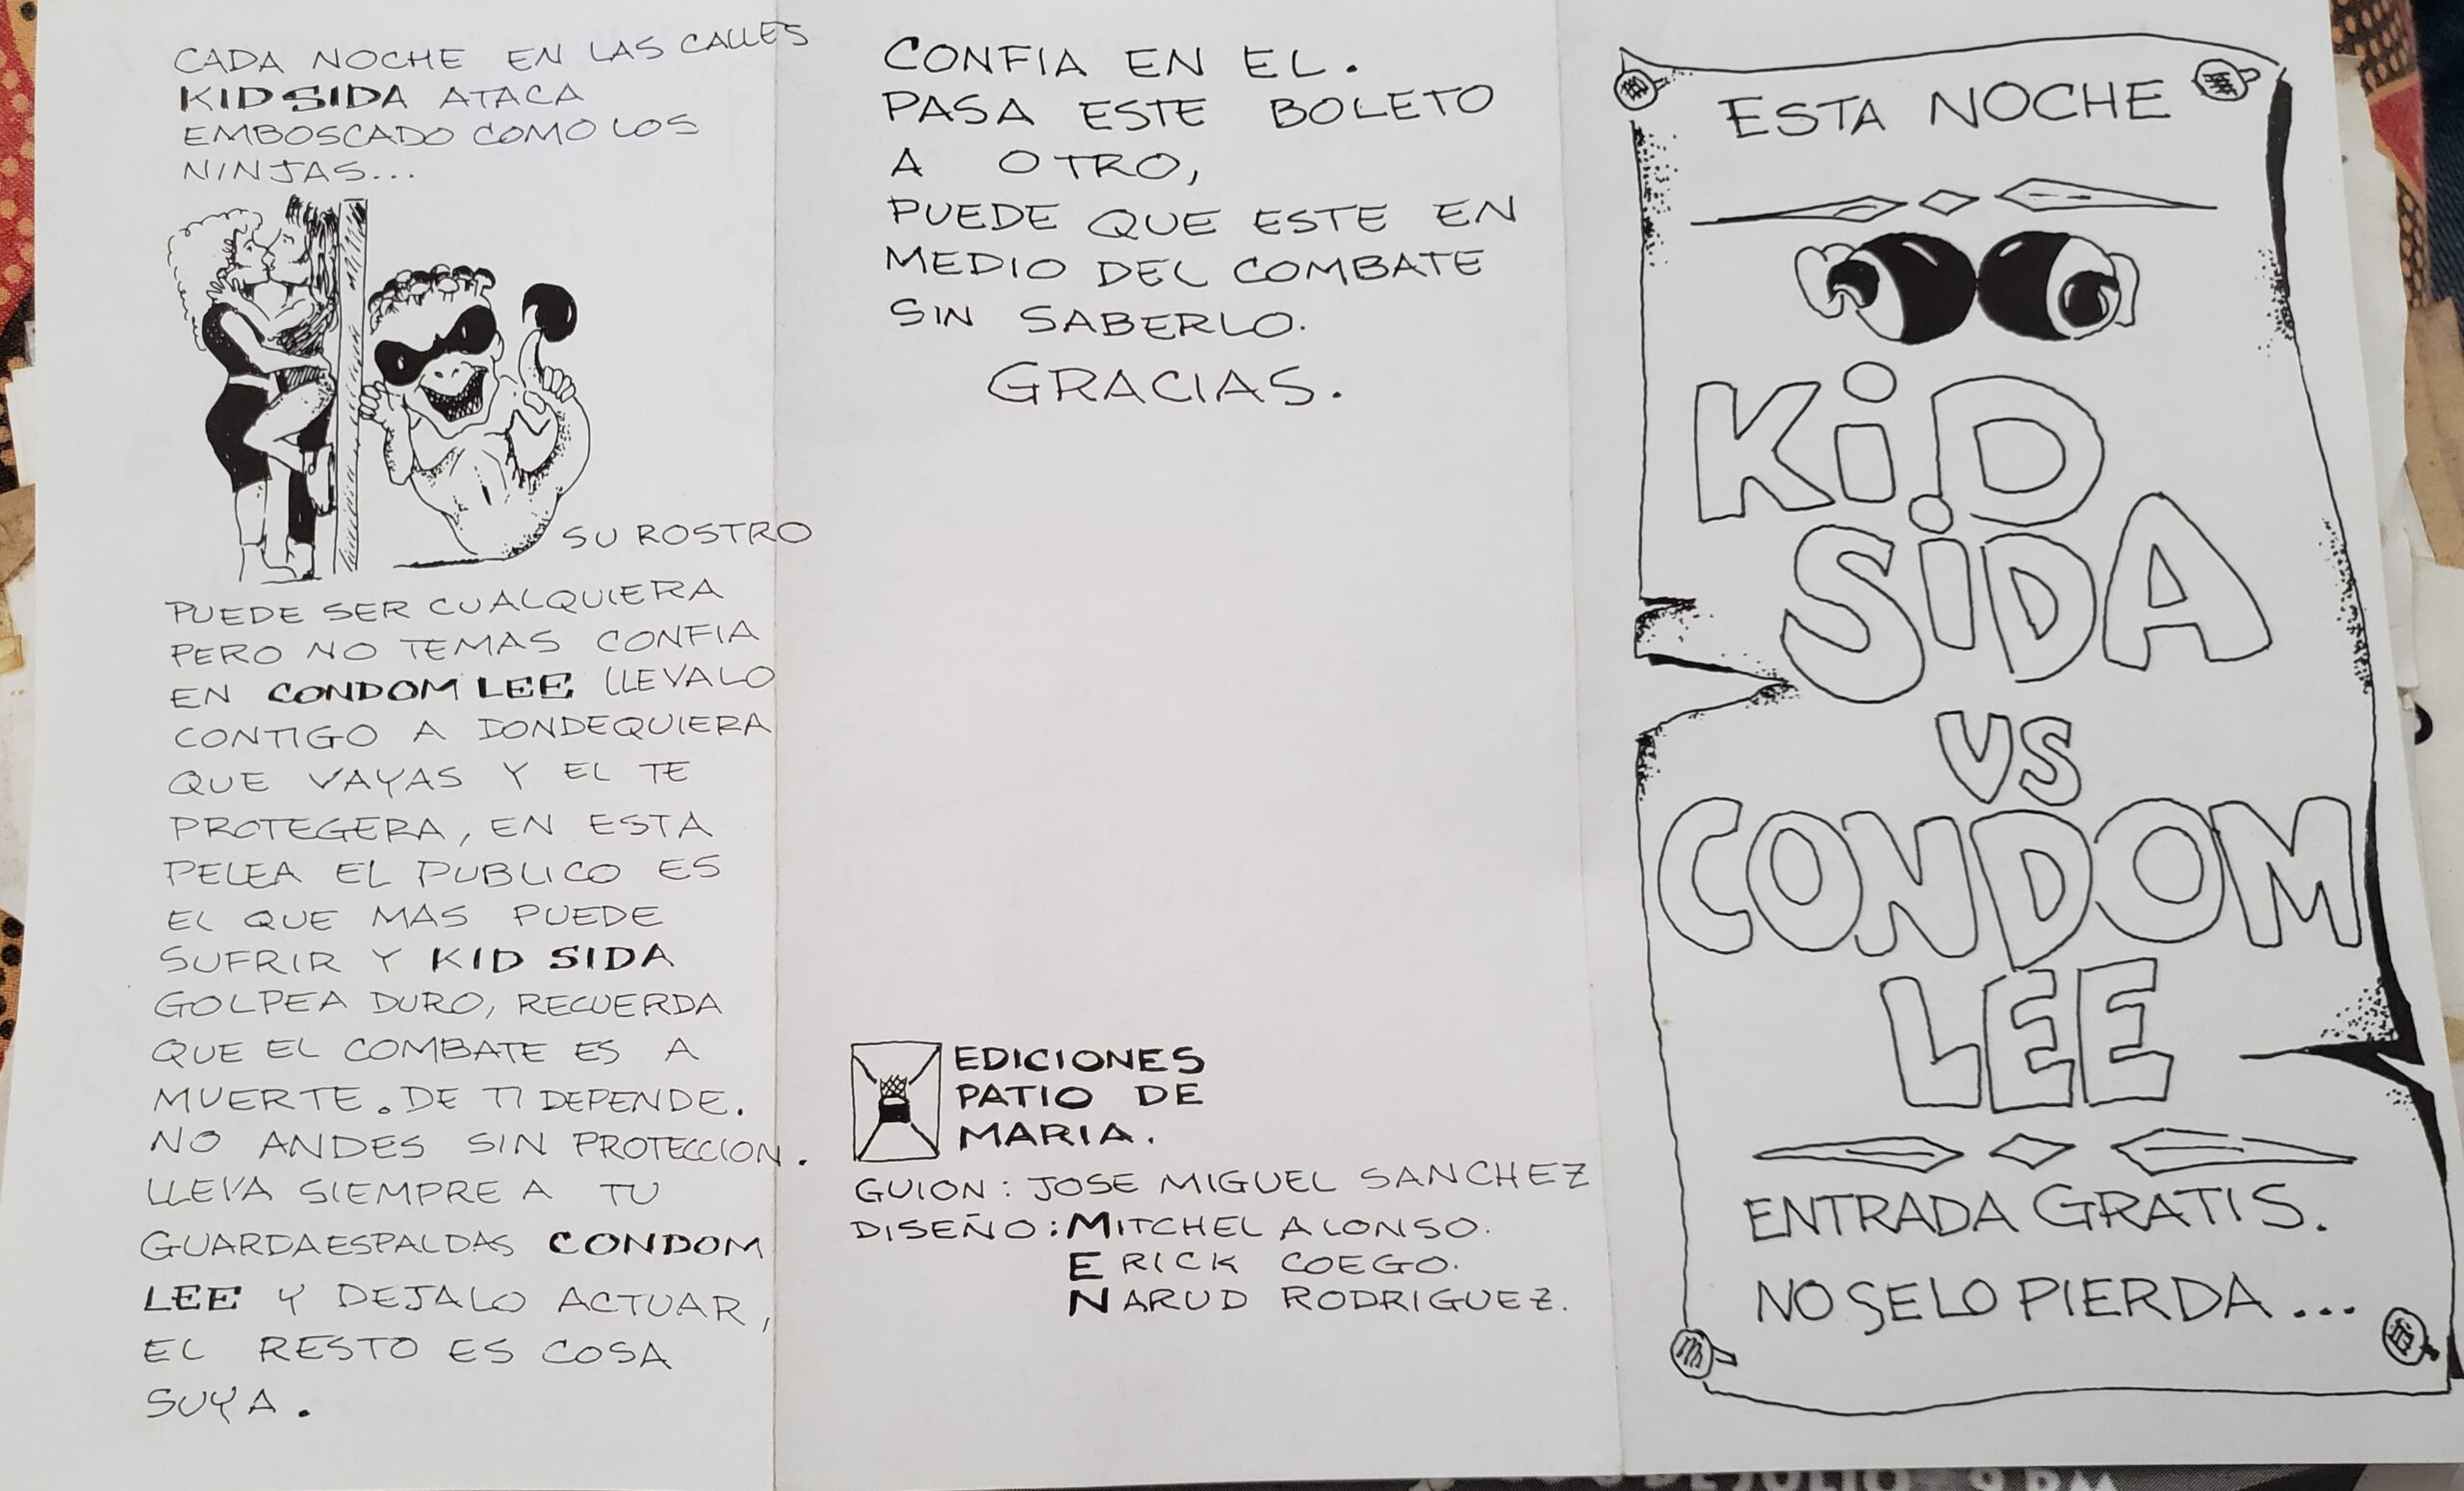 CADA NOCHE EN LAS CALLES
KID SIDA ATACA
EMBOSCADO COMO LOS
NINJAS...
SU ROSTRO
PUEDE SER CUALQUIERA
PERO NO TEMAS CONFIA
EN CONDOM LEE LLEVALO
CONTIGO A DONDEQUIERA
QUE VAYAS Y EL TE
PROTEGERA, EN ESTA
PELEA EL PUBLICO ES
EL QUE MAS PUEDE
SUFRIR Y KID SIDA
GOLPEA DURO, RECUERDA
QUE EL COMBATE ES A
MUERTE. DE TI DEPENDE.
NO ANDES SIN PROTECCION.
LLEVA SIEMPRE A TU
GUARDAESPALDAS CONDOM
LEE Y DEJALO ACTUAR,
EL RESTO ES COSA
SUYA.
CONFIA EN EL.
PASA ESTE BOLETO
A OTRO,
PUEDE QUE ESTE EN
MEDIO DEL COMBATE
SIN SABERLO.
GRACIAS.
EDICIONES
PATIO DE
MARIA.
GUION: JOSE MIGUEL SANCHEZ
DISEÑO: MITCHEL ALONSO.
ERICK COEGO.
NARUD RODRIGUEZ.
ESTA NOCHE
KiD
SiDA
VS
CONDOM
LEE
ENTRADA GRATIS.
NO SE LO PIERDA...
DE JULIO - 9 PM